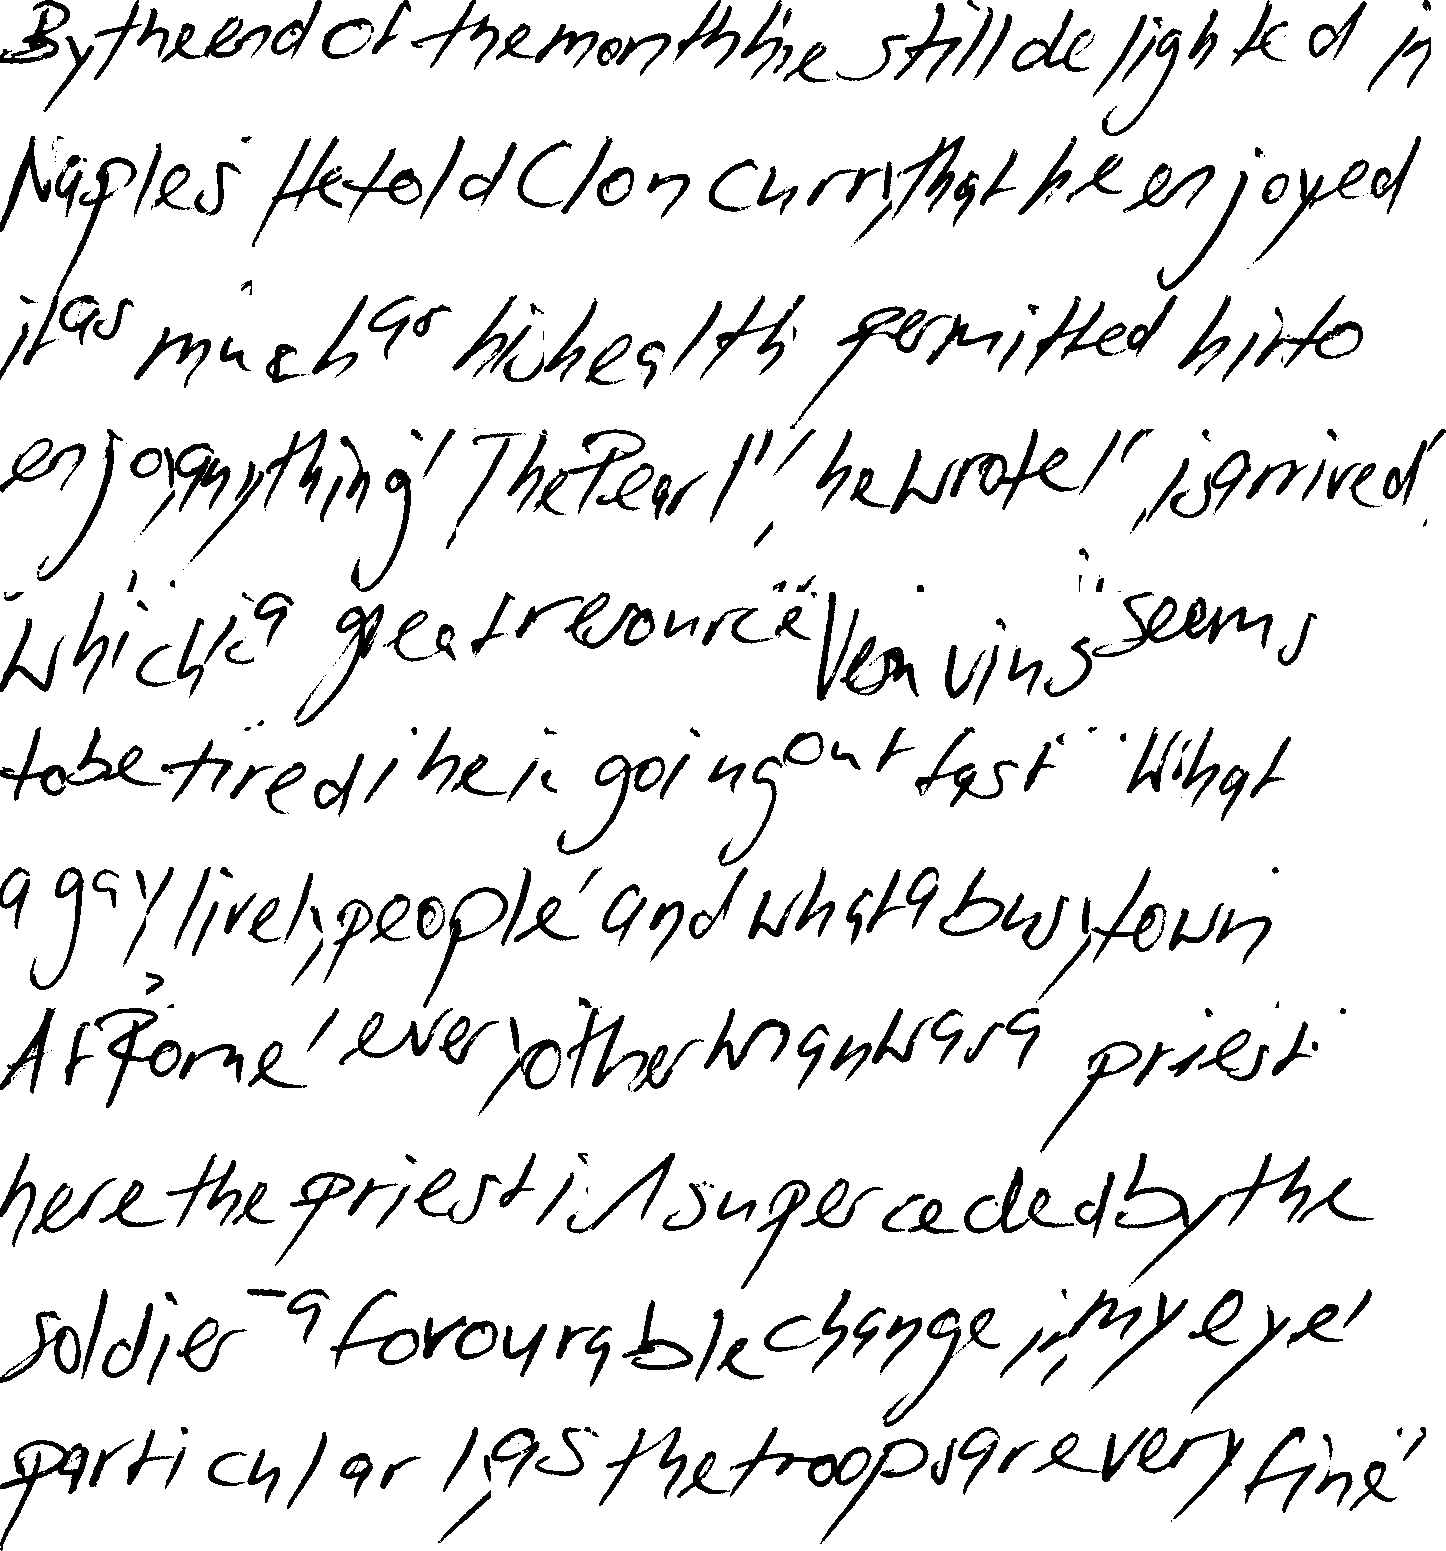 By the end of the month he still delighted in
Naples. He told Cloncurry that he enjoyed
it as much as his health permitted hi to
enjoy anything. 'The Pearl', he wrote, 'is arrived,
which is a great resource. Vesuvius seems
to be tired; he is going out fast. What
a gay lively people, and what a busy town.
At Rome, every other man was a priest;
here the priest is superceded by the
soldier – a favourable change in my eye,
particularly as the troops are very fine.'